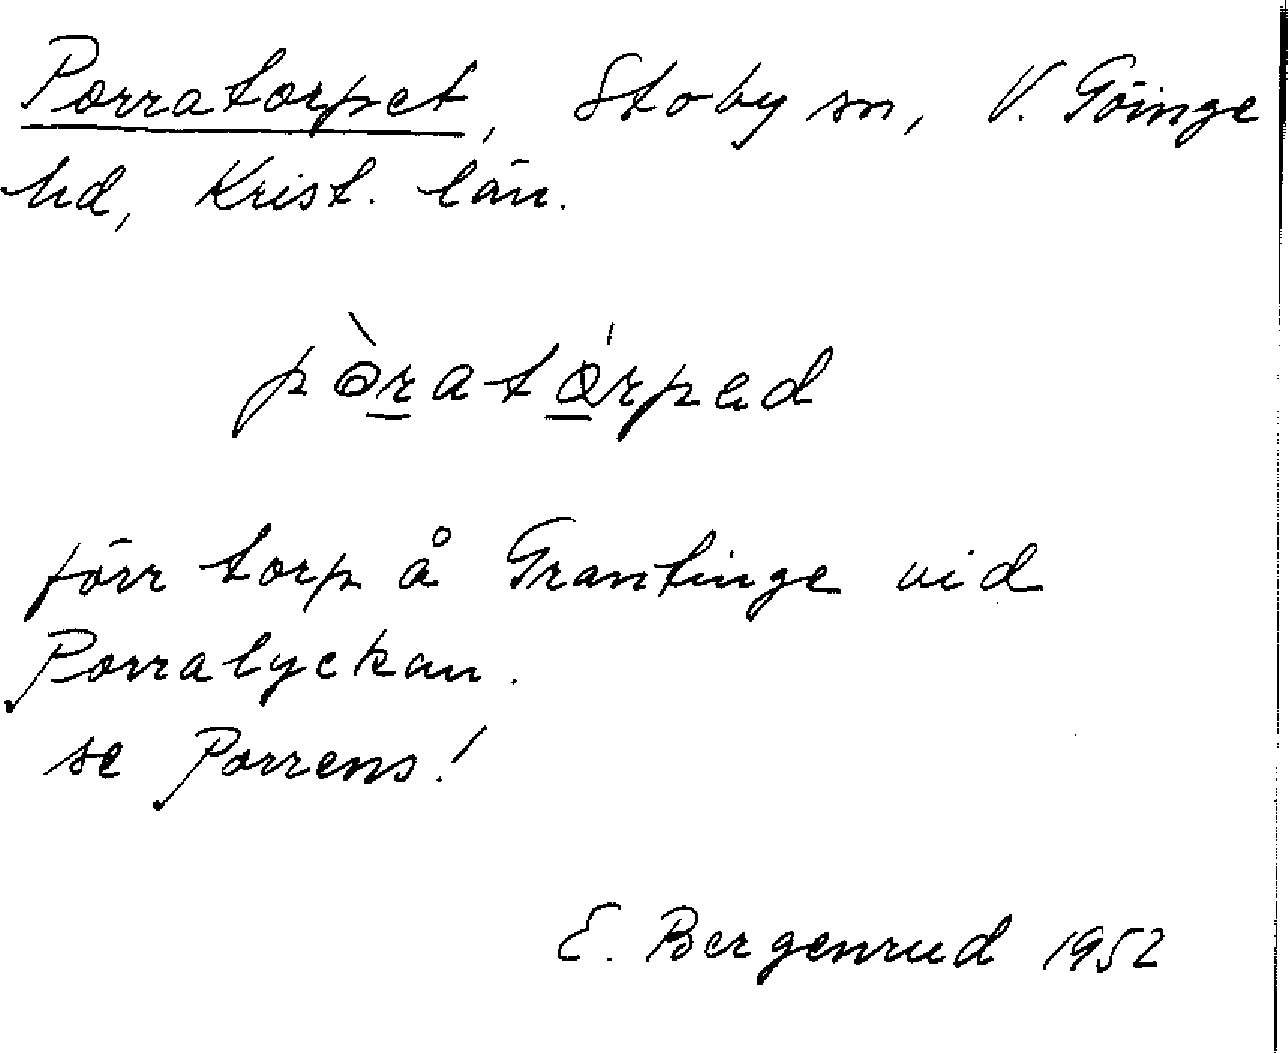 Porratorpet, Stoby sn, V. Göinge
hd, Krist. län.
pòratórpad
förr torp å Grantinge vid
Porralyckan.
se Porrens!
E. Bergenrud 1952